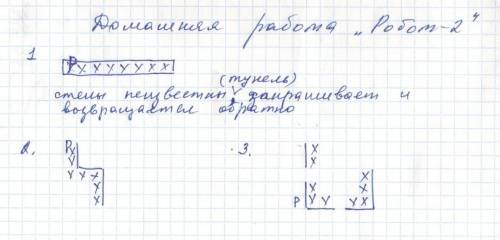 Домашняя работа „Робот-2"
1
Р X X X X X X X
(тунель)
стены неизвестны, закрашивает и
возвращается обратно
2. 3.
Р X X
X X
X X X X X
X X X
X Р X X X X